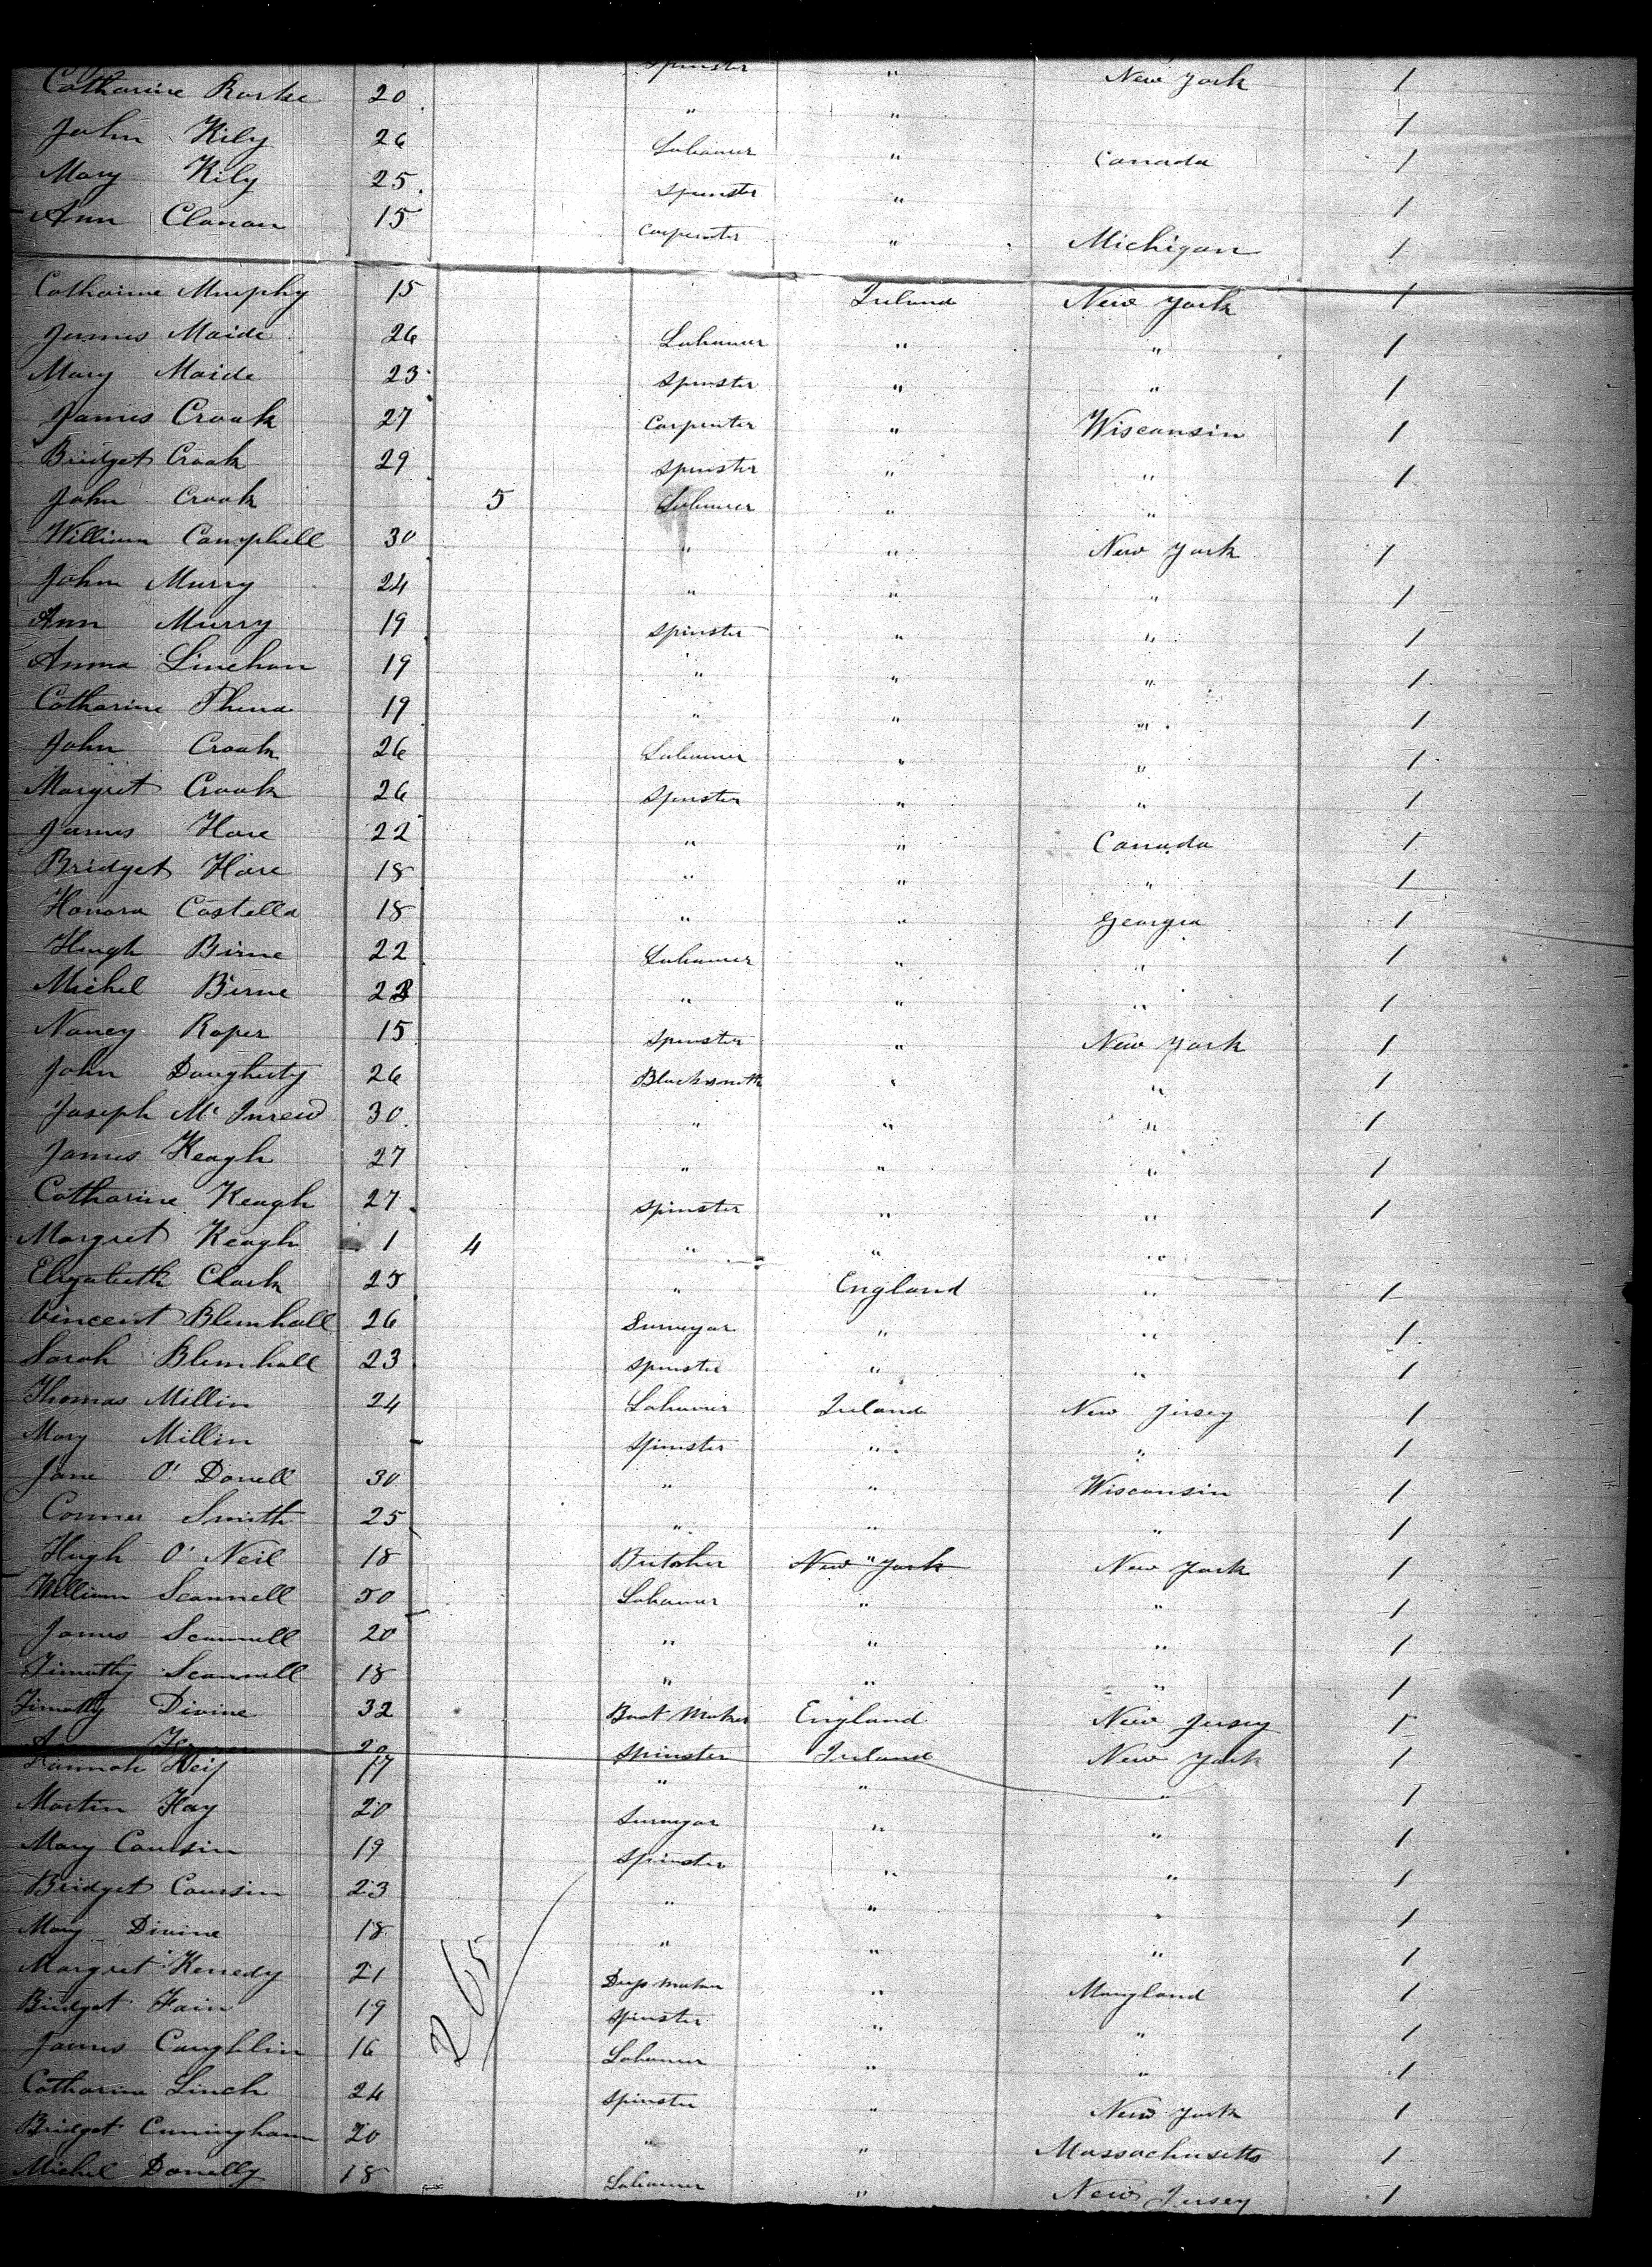 Spinster " New York 1
Catharine Burke 20 " " 1
John Kily 26 Labourer " Canada 1
Mary Kily 25 Spinster " 1
Ann Clanan 15 Carpenter " Michigan 1
Catharine Murphy 15 Ireland New York 1
James Maide 26 Labourer " " 1
Mary Maide 23 Spinster " " 1
James Croak 27 Carpenter " Wisconsin 1
Bridget Croak 29 Spinster " " 1
John Croak 5 Labourer " "
William Campbell 30 " " New York 1
John Murry 24 " " " 1
Ann Murry 19 Spinster " " 1
Anna Linehan 19 " " " 1
Catharine 19 " " " 1
John Croak 26 Labourer " " 1
Margret Croak 26 Spinster " " 1
James Hare 22 " " Canada 1
Bridget Hare 18 " " " 1
Honora Costella 18 " " Georgia 1
Hugh Birne 22 Labourer " " 1
Michel Birne " " " 1
Nancy Roper 15 Spinster " New York 1
John Daugherty 26 Blacksmith " " 1
Joseph Mc 30 " " " 1
James Keagh 27 " " " 1
Catharine Keagh 27 Spinster " " 1
Margret Keagh 1 4 " " "
Elizabeth Clark 25 " England " 1
Vincent Blumhall 26 Surveyor " " 1
Sarah Blumhall 23 Spinster " " 1
Thomas Millin 24 Labourer Ireland New Jersey 1
Mary Millin Spinster " " 1
Jane O'Donell 30 " " Wisconsin 1
Conner Smith 25 " " " 1
Hugh O'Neil 18 Butcher New York " New York 1
William Scannell 50 Labourer " " 1
James Scannell 20 " " " 1
Timothy Scannell 18 " " " 1
Timothy Divine 32 Boot Maker England New Jersey 1
20 Spinster Ireland New York 1
Hannah 17 " " " 1
Martin Hay 20 Surveyor " " 1
Mary Cousin 19 Spinster " " 1
Bridget Cousin 23 " " " 1
Mary Divine 18 " " " 1
Margret Kenedy 21 Dress Maker " Maryland 1
Bridget Fain 19 Spinster " " 1
James Coughlin 16 Labourer " " 1
Catharine Linch 24 Spinster " New York 1
Bridget Cuningham 20 " " Massachusetts 1
Michel Donelly 18 Labourer " New Jersey 1
265